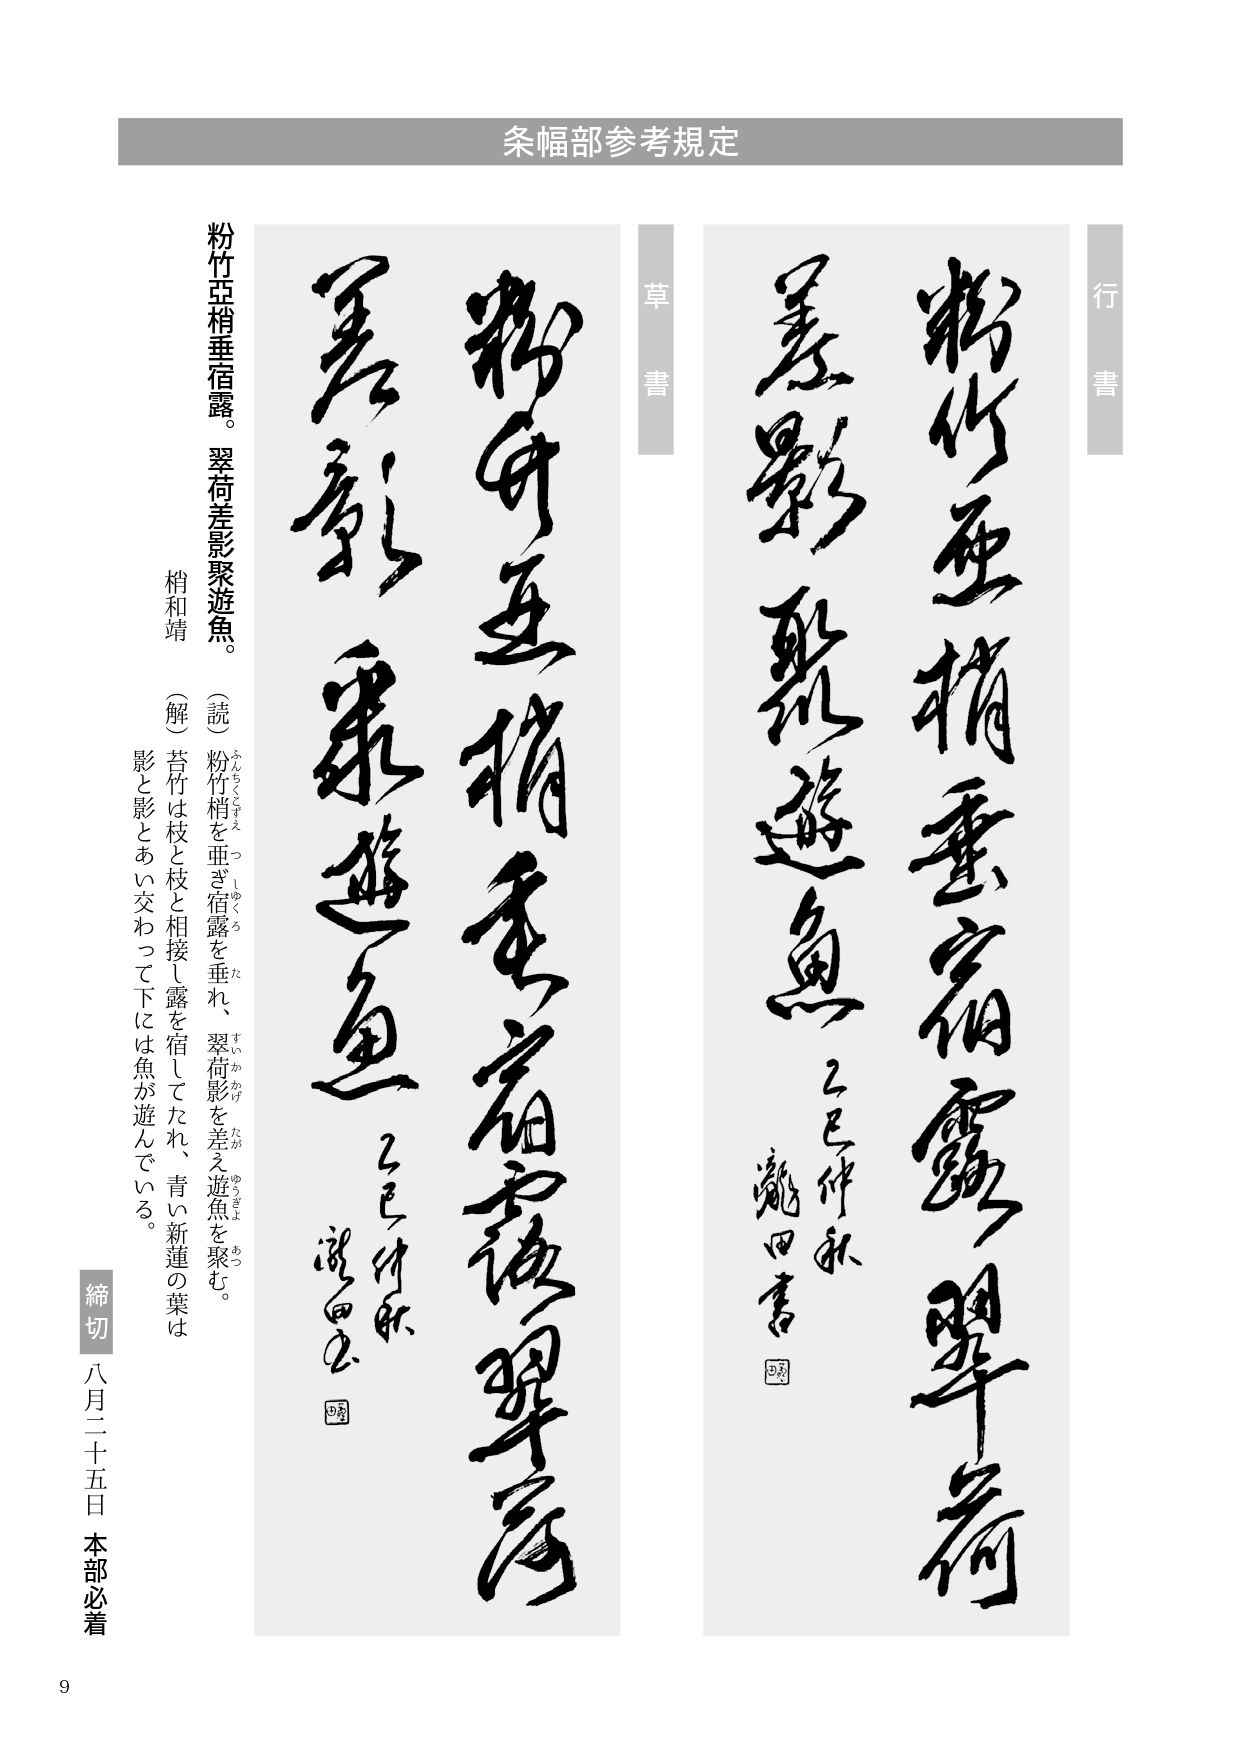 条幅部参考規定
行書
粉竹亞梢垂宿露翠荷
差影聚遊魚
乙巳仲秋
瀧田書
草書
粉竹亞梢垂宿露翠荷
差影聚遊魚
乙巳仲秋
瀧田書
粉竹亞梢垂宿露。翠荷差影聚遊魚。
梢和靖
（読）粉竹梢を亜ぎ宿露を垂れ、翠荷影を差え遊魚を聚む。
ふんちくこずえ つ しゅくろ た すいかかげ たが ゆうぎょ あつ
（解）苔竹は枝と枝と相接し露を宿してたれ、青い新蓮の葉は
影と影とあい交わって下には魚が遊んでいる。
締切 八月二十五日 本部必着
9